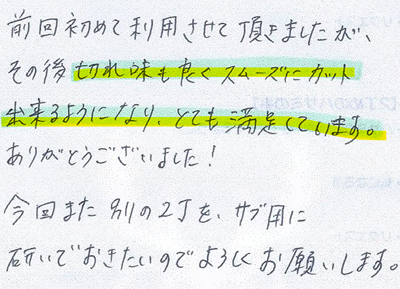 前回初めて利用させて頂きましたが、
その後切れ味も良くスムーズにカット
出来るようになり、とても満足しています。
ありがとうございました！
今回また別の2丁を、サブ用に
研いでおきたいのでよろしくお願いします。